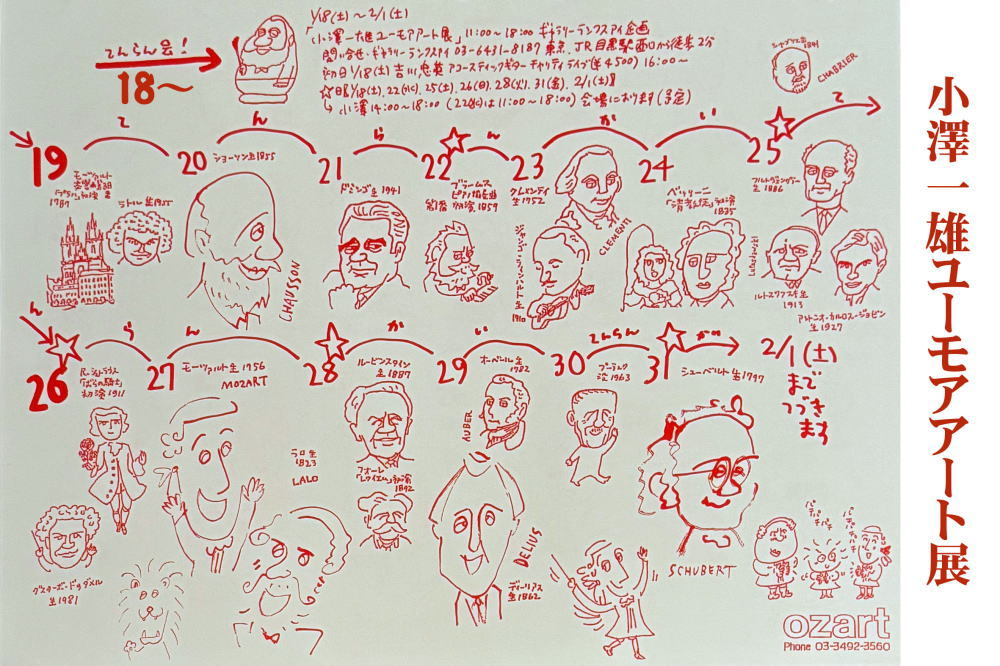 1/18(土)~2/1(土)
「小澤一雄ユーモアアート展」11:00~18:00 ギャラリーランクスアイ企画
問い合せ・ギャラリーランクスアイ 03-6431-8187 東京、JR目黒駅西口から徒歩2分
初日1/18(土)吉川忠英アコースティックギターチャリティライブ(¥4500)16:00~
☆日1/18(土)、22(水)、25(土)、26(日)、28(火)、31(金)、2/1(土)
小澤14:00~18:00(22(水)は11:00~18:00)会場におります(予定)
てんらん会!
18~
シャブリエ生1841
CHABRIER
て ん ら ん か い て
19 20 21 22 23 24 25
モーツァルト
交響曲38
「プラハ」初演
1787
ラトル生1955
ショーソン生1855
CHAUSSON
ドミンゴ生1941
ブラームス
ピアノ協奏曲
第1番 初演1859
クレメンティ
生1752
CLEMENTI
ジャンゴ・ラインハルト生
1910
ベッリーニ
「清教徒」初演
1835
フルトヴェングラー
生1886
Lutosławski
ルトスワフスキ生
1913
アントニオ・カルロス・ジョビン
生1927
ん ら ん か い てんらん かい
26 27 28 29 30 31
2/1(土)
まで
つづき
ます
R.シュトラウス
「ばらの騎士」
初演1911
モーツァルト生1756
MOZART
ルービンスタイン
生1887
オーベール生
1782
AUBER
プーランク
没1963
シューベルト生1797
SCHUBERT
ラロ生
1823
LALO
フォーレ
「レクイエム」初演
1892
DELIUS
ディーリアス
生1862
グスターボ・ドゥダメル
生1981
パチパチパチ
ozart
Phone 03-3492-3560
小澤一雄ユーモアアート展